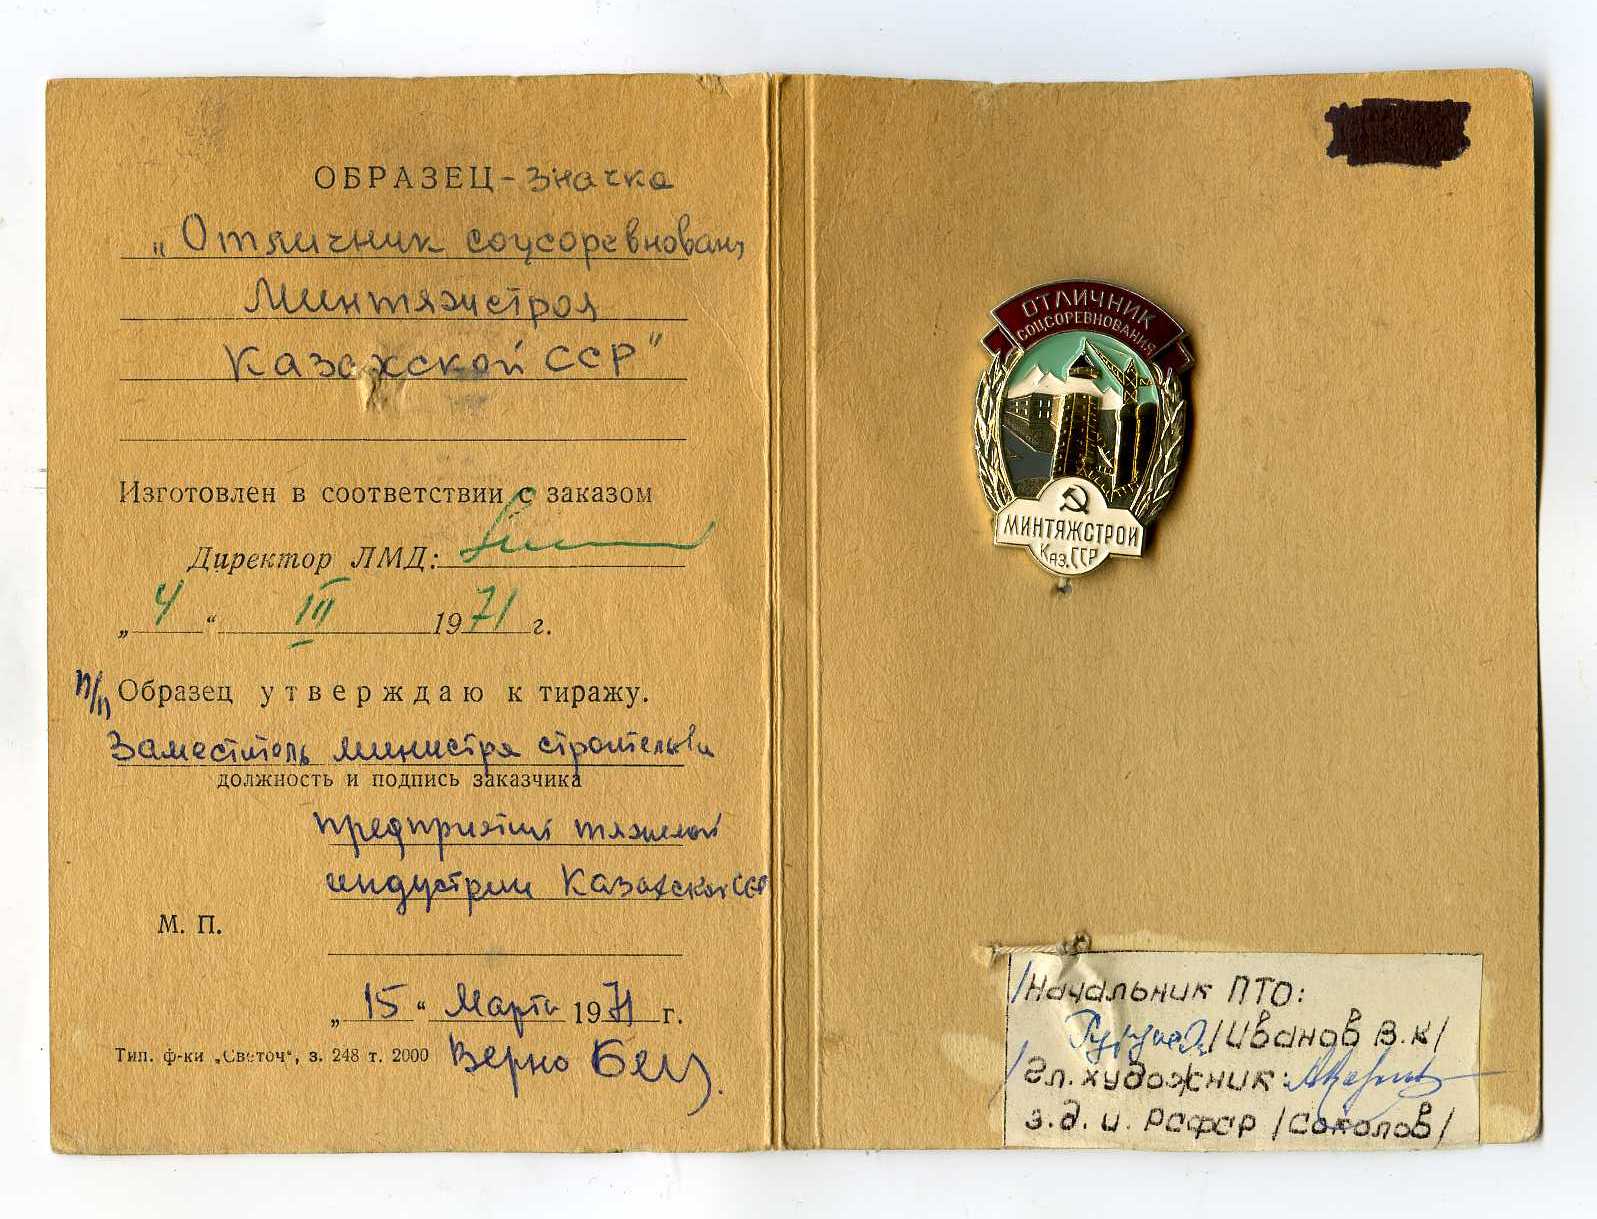 ОБРАЗЕЦ - значка
„Отличник соцсоревнован
Минтяжстроя
Казахской ССР"
Изготовлен в соответствии с заказом
Директор ЛМД:
„4“ III 1971 г.
п/п Образец утверждаю к тиражу.
Заместитель министра строительства
должность и подпись заказчика
предприятий тяжелой
индустрии Казахской ССР
М. П.
„15“ Марта 1971 г.
Тип. ф-ки „Светоч“, з. 248 т. 2000
Верно
ОТЛИЧНИК
СОЦСОРЕВНОВАНИЯ
МИНТЯЖСТРОЙ
Каз.ССР
/Начальник ПТО:
/Иванов В.К/
/гл. художник:
з.д.и. РСФСР /Соколов/